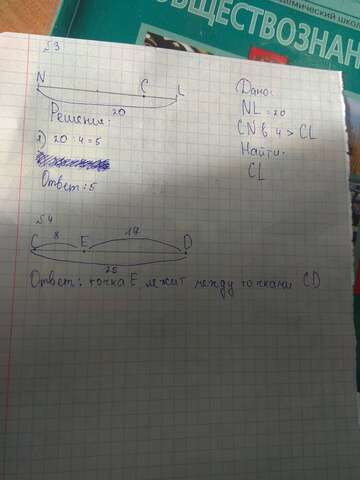 ОБЩЕСТВОЗНАН
№3
N C L
20
Решение:
1) 20 : 4 = 5
Ответ: 5
Дано:
NL = 20
CN в 4 > CL
Найти:
CL
№4
8 17
C E D
25
Ответ: точка E, лежит между точками CD